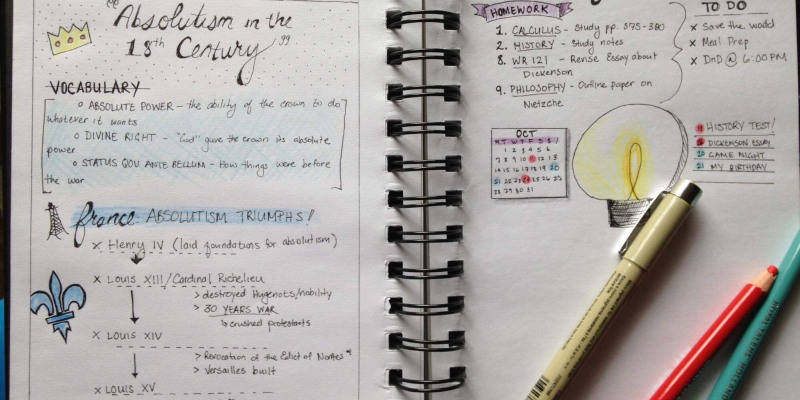 "Absolutism in the
18th Century"
VOCABULARY
ABSOLUTE POWER - the ability of the crown to do
whatever it wants
DIVINE RIGHT - "God" gave the crown its absolute
power
STATUS QOU ANTE BELLUM - How things were before
the war
france ABSOLUTISM TRIUMPHS!
x Henry IV (laid foundations for absolutism)
x Louis XIII/Cardinal Richelieu
> destroyed Hugenots/nobility
> 30 YEARS WAR
↳ crushed protestants
x Louis XIV
> Revocation of the Edict of Nantes
> Versailles built
x Louis XV
HOMEWORK
1. CALCULUS - Study pp. 375-380
2. HISTORY - Study notes
8. WR 121 - Revise Essay about
Dickenson
9. PHILOSOPHY - Outline paper on
Nietzche
TO DO
x Save the world
x Meal Prep
x DnD @ 6:00 PM
OCT
M T W T F S S
1 2 3 4 5 6
7 8 9 10 11 12 13
14 15 16 17 18 19 20
21 22 23 24 25 26 27
28 29 30 31
HISTORY TEST!
DICKENSON ESSAY
GAME NIGHT
21 MY BIRTHDAY